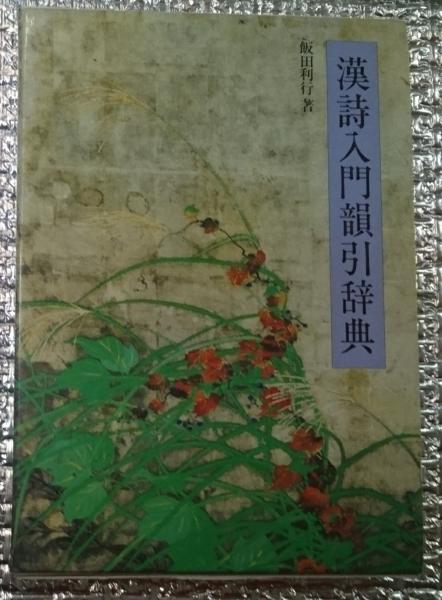 漢詩入門韻引辞典
飯田利行著